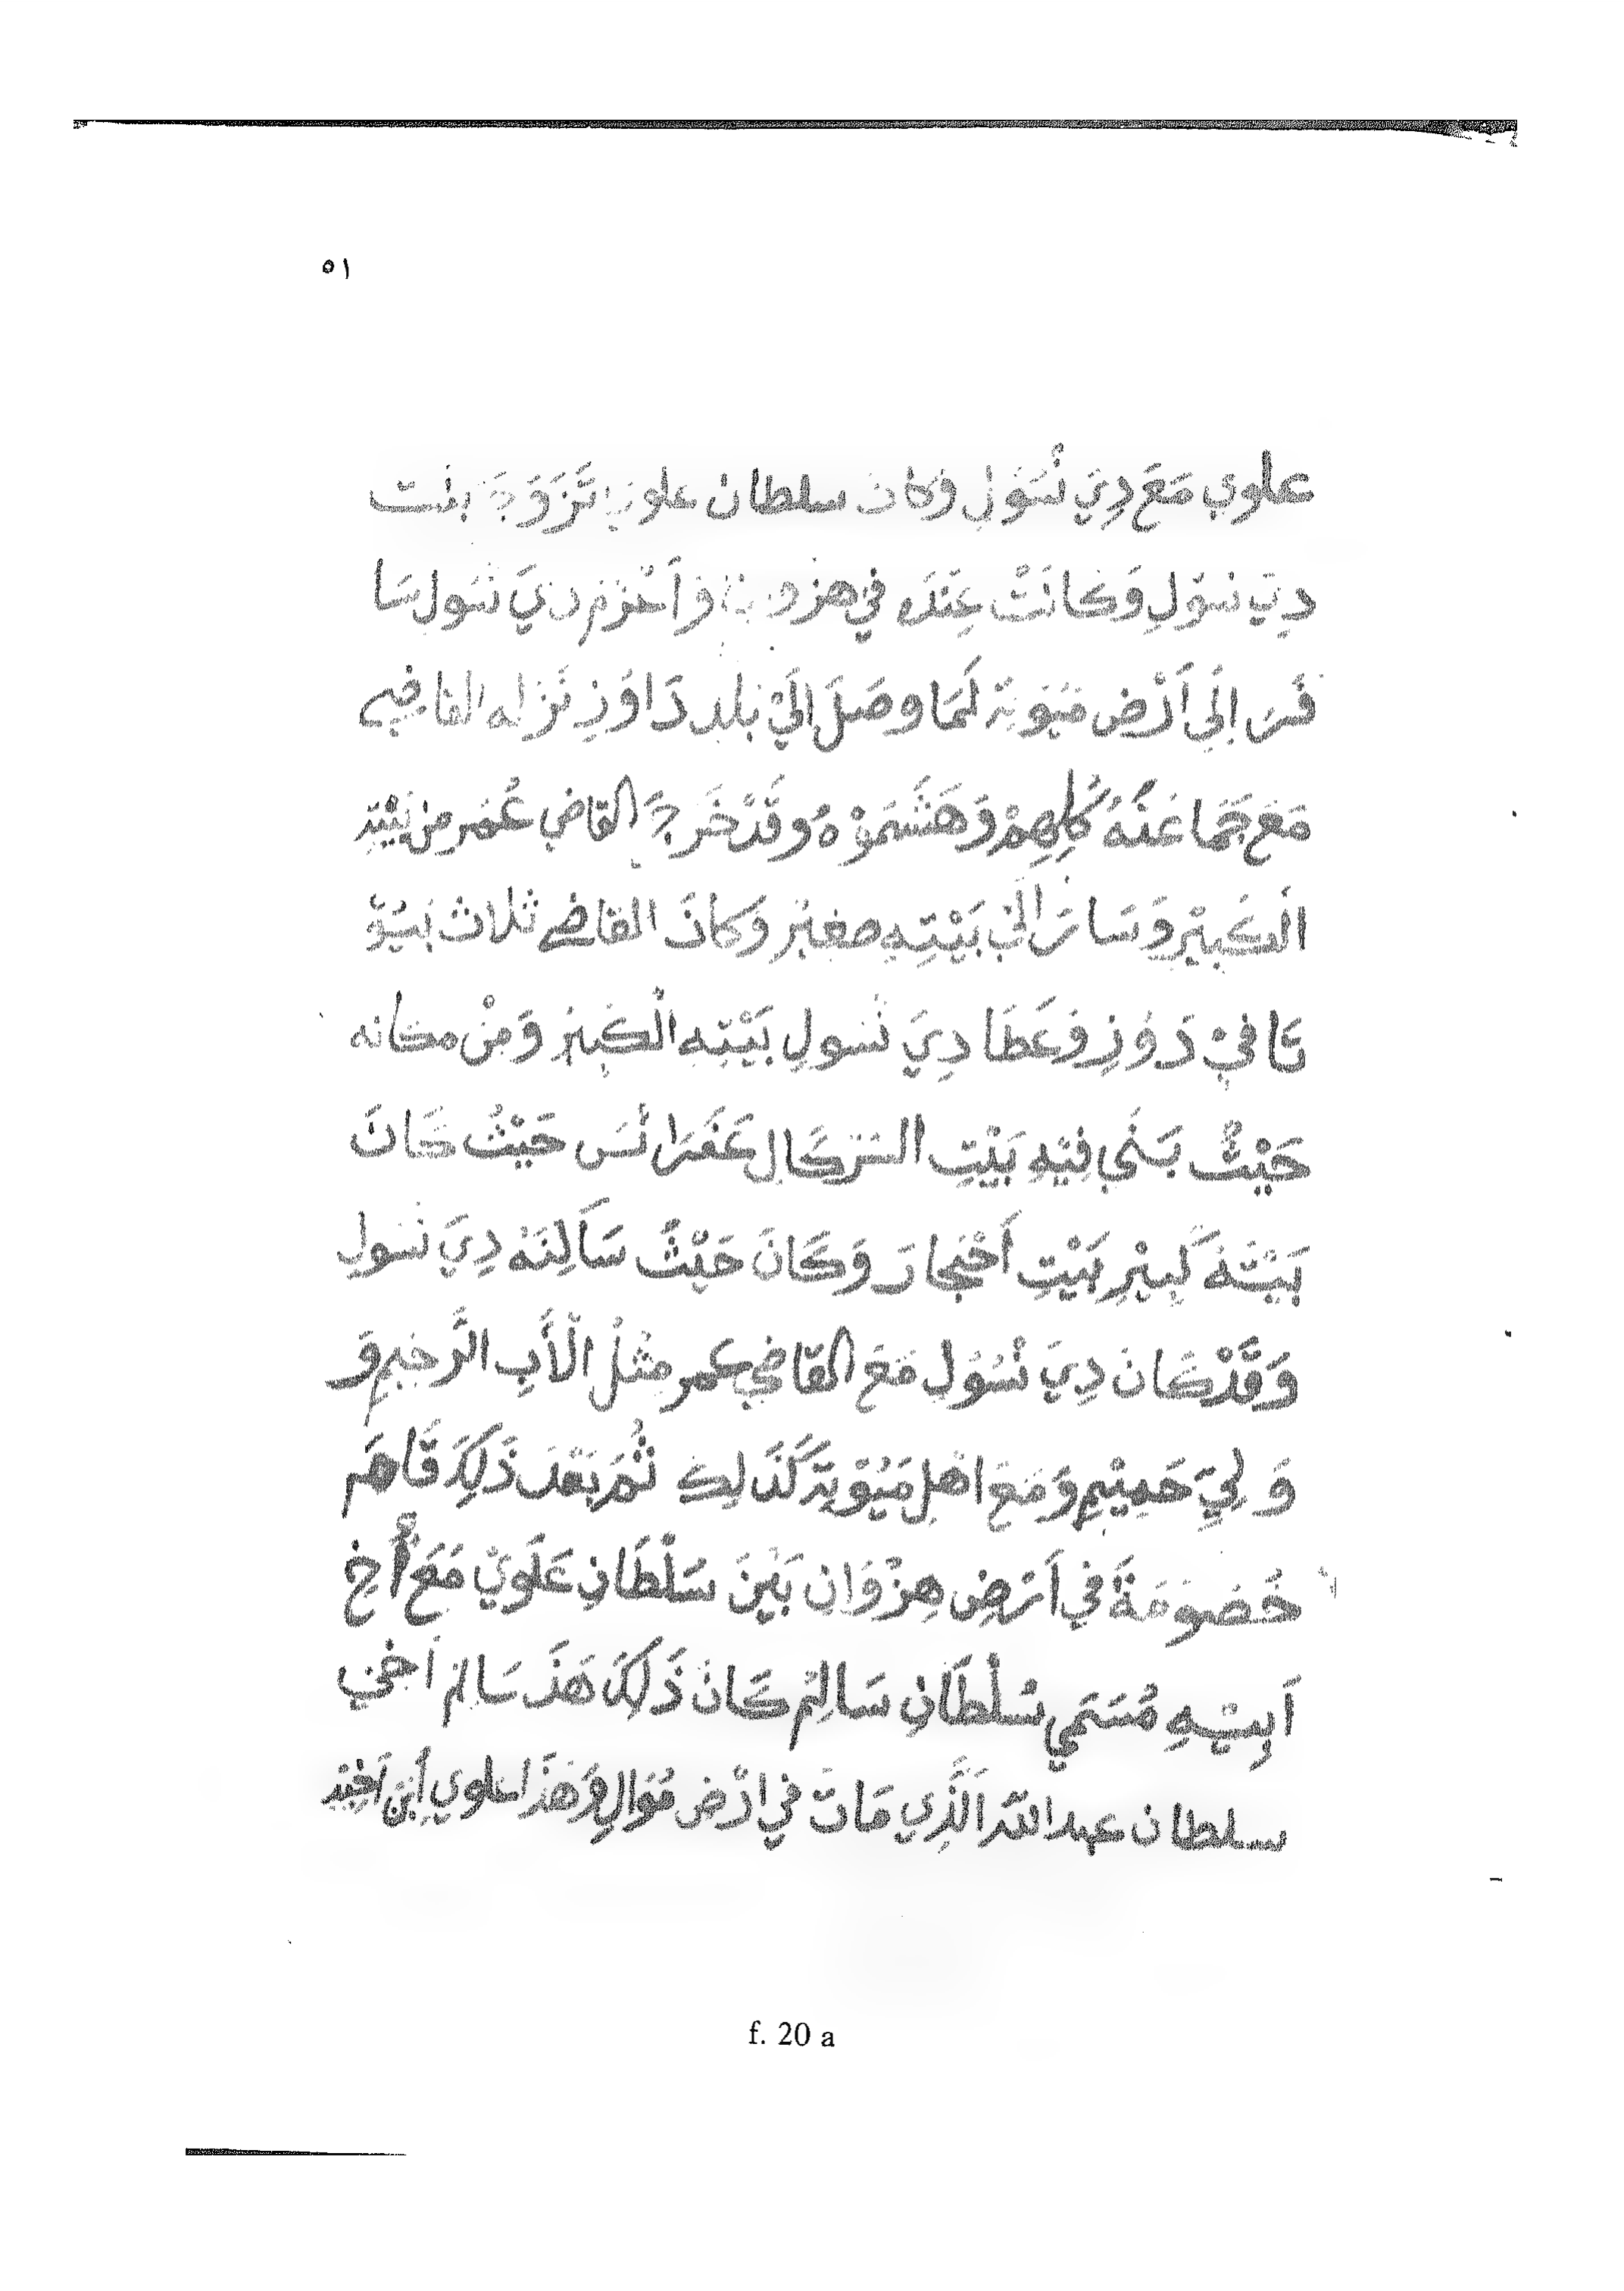 ٥١
علوي مَعَ دِيَ نْسُوْلِ وَكان سلطان علوي تَزَوَجَ بنت
دِيَ نسُوْلِ وَكانَتْ عِنْدَه في هزو وَاَخْزم دِيَ نْسُول سَا
فَرَ اِلَي اَرْض مَيُوتِه لَمَا وصَلَ اِلَيْ بَلَد دَاوُز نَزله القاضي
مَعَ جَمَاعَتُهُ كُلِهِمْ وَهَشَمُوْهُ وَقَدْ خَرجَ القاضي عُمَر من بَيْتِه
الكَبِيْرِ وَسَارَ اِلَيْ بَيْتِهِ صغير وَكانَ القاضي ثلاث بَيُوْ
تَا فيْ دَوُزِ وَعَطَا دِيَ نْسُولِ بَيْتِه الْكَبِيْر وَمِنْ مكانه
حَيْثُ بَنَي فِيْهِ بَيْتِ السَركَال عَفَرَانْسَ حَيْثُ كَانَ
بَيْتَهُ كَبِيْرِ بَيْتِ اَحْجارَ وَكَانَ حَيْثُ سَاَلِتَهُ دِيَ نْسُولِ
وَقَدْ كَانَ دِيَ نْسُوْلِ مَعَ القاضي عمر مِثْلُ الْاَبِ الرَّحيم وَ
وَلِيَ حَمِيْمٍ وَمَعَ اهْل مَيُوْتِه كَذَالِك ثُمَ بَعْدَ ذَلِكَ قَاهَم
خُصُومَةُ في اَرْضِ هِزْوَانِ بَيْنَ سُلْطَانِ عَلَويْ مَعَ اَخِ
اَبِيْهِ مُسَمي سُلْطَانِ سَالِمْ كَانَ ذَلِكَ هَذَ سَالم اَخي
سلطان عبد اللّه الَّذِي مَاتَ في ارْض مُوَالِ وَهَذَا علوي اَبْنِ اَخِيْهِ
f. 20 a